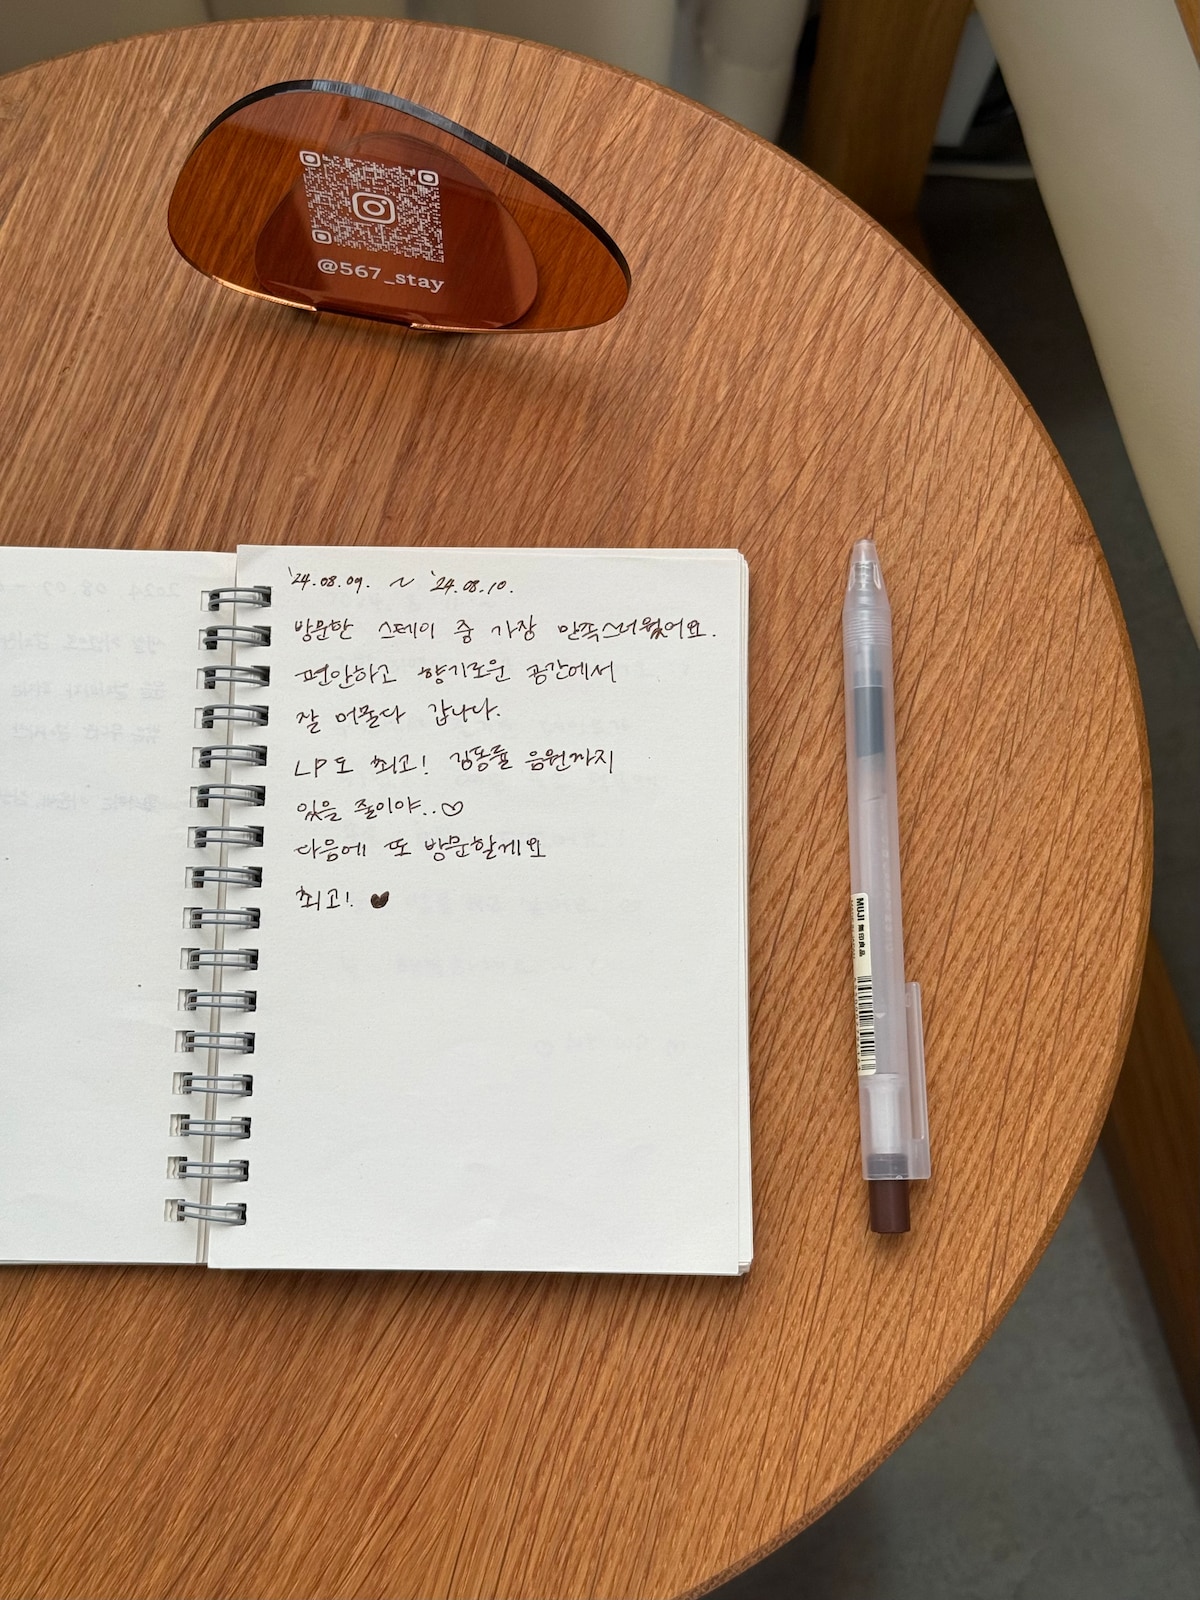 @567_stay
'24.08.09. ~ '24.08.10.
방문한 스테이 중 가장 만족스러웠어요.
편안하고 향기로운 공간에서
잘 머물다 갑니다.
LP도 최고! 김동률 음원까지
있을 줄이야..♡
다음에 또 방문할게요
최고! ♥
MUJI 無印良品